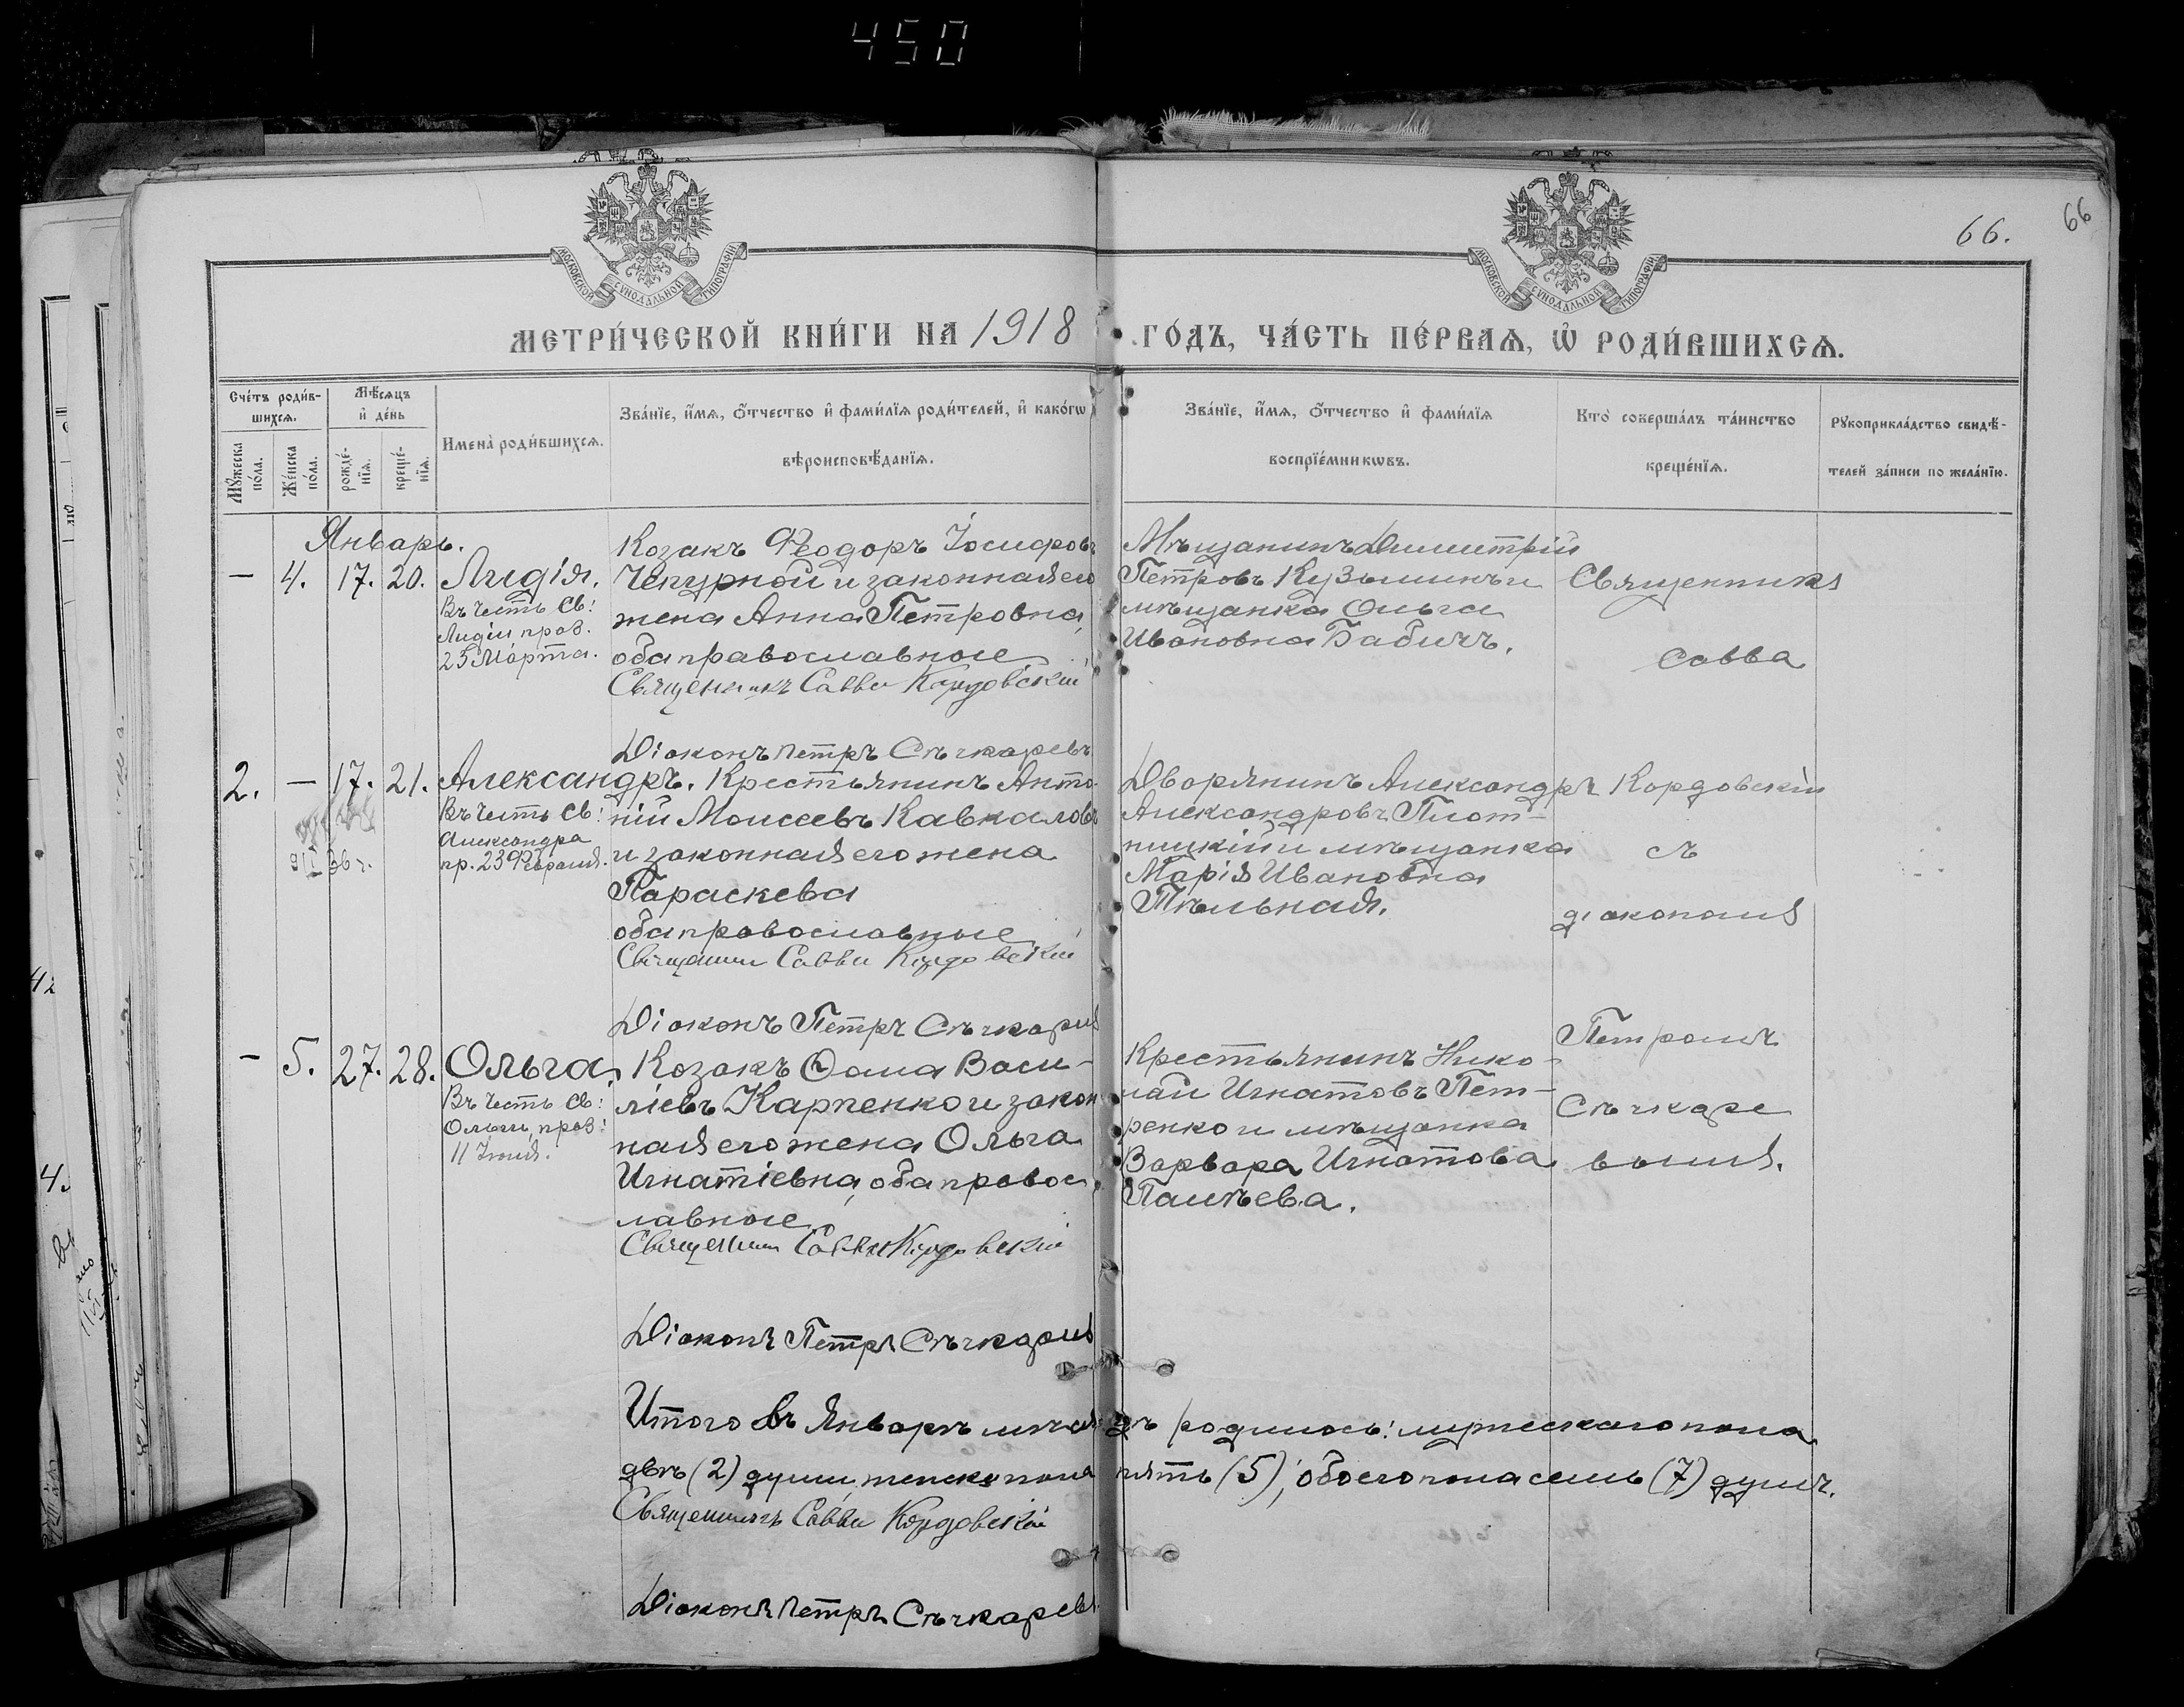 450
66.
66
МОСКОВСКОЙ СУНОДАЛЬНОЙ ТИПОГРАФІИ
МОСКОВСКОЙ СУНОДАЛЬНОЙ ТИПОГРАФІИ
МЕТРИ́ЧЕСКОЙ КНИ́ГИ НА 1918 ГО́ДЪ, ЧА́СТЬ ПЕ́РВАѦ, Ѡ҆ РОДИ́ВШИХСѦ.
Сче́тъ роди́в-
шихсѧ.
Мꙋ́жеска по́ла.
Же́нска по́ла.
Мѣ́сѧцъ
и҆ де́нь
рожде́-
нїѧ.
креще́-
нїѧ.
Имена̀ роди́вшихсѧ.
Зва́нїе, и҆́мѧ, ѻ҆́тчество и҆ фами́лїѧ роди́телей, и҆ како́гѡ
вѣроисповѣ́данїѧ.
Зва́нїе, и҆́мѧ, ѻ҆́тчество и҆ фами́лїѧ
воспрїе́мникѡвъ.
Кто̀ соверша́лъ та́инство
креще́нїѧ.
Рꙋкоприкла́дство свидѣ́-
телей за́писи по жела́нїю.
Январь.
— 4. 17. 20. Лидія.
Въ честь св:
Лидіи праз.
23 Марта.
Козакъ Ѳеодоръ Іосифовъ
Чепурной и законная его
жена Анна Петровна,
оба православные
Священникъ Савва Кордовскій
Діаконъ Петръ Сѣчкаревъ
Мѣщанинъ Димитрій
Петровъ Кузьминъ и
мѣщанка Ольга
Ивановна Бабичъ.
Священникъ
Савва
2. — 17. 21. Александръ.
Въ честь св:
Александра
пр. 23 Февраля.
Крестьянинъ Анто-
ній Моисеевъ Кавкаловъ
и законная его жена
Параскева
оба православные
Священник Савва Кордовскій
Діаконъ Петръ Сѣчкарев
Дворянинъ Александръ
Александровъ Плот-
ницкій и мѣщанка
Марія Ивановна
Тѣльная.
Кордовскій
съ
діакономъ
- 5. 27. 28. Ольга,
Въ честь св:
Ольги, праз:
11 Іюля.
Козакъ Ѳома Васи-
ліевъ Карпенко и закон
ная его жена Ольга
Игнатіевна, оба правос
лавные.
Священник Савва Кордовскій
Діаконъ Петръ Сѣчкарев
Крестьянинъ Нико-
лай Игнатовъ Пет-
ренко и мѣщанка
Варвара Игнатова
Палѣева.
Петромъ
Сѣчкаре
вымъ.
Итого въ Январѣ мѣсяцѣ родилось: мужескаго пола
двѣ (2) души, женска пола пять (5), обоего пола семь (7) душъ.
Священникъ Савва Кордовскій
Діаконъ Петръ Сѣчкаревъ